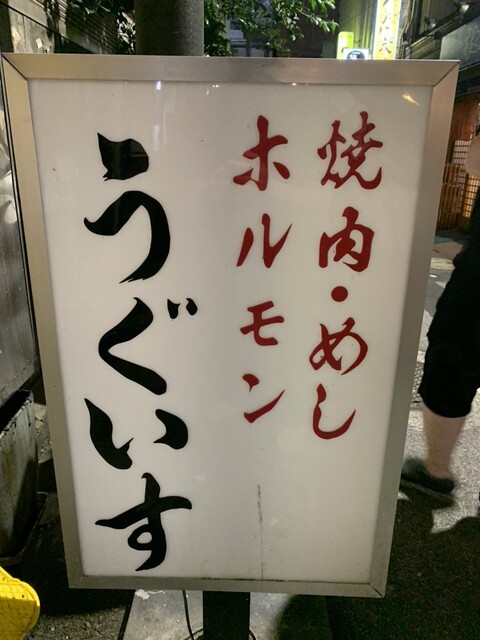 焼肉・めし
ホルモン
うぐいす